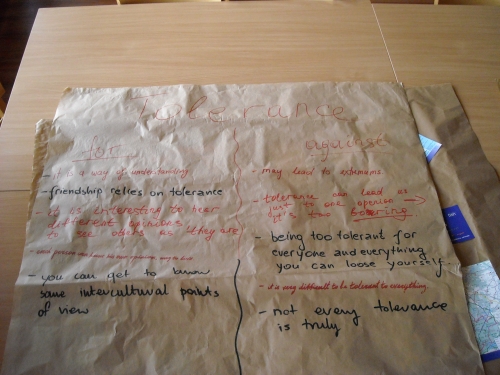 Tolerance
for
- it is a way of understanding
- friendship relies on tolerance
- is interesting to hear
different opinions
to see others as they are
- you can get to know
some intercultural points
of view
against
- may lead to extremums
- tolerance can lead as
just to one openion →
it's too boooring
- being too tolerant for
everyone and everything
you can loose yourself
- it is very difficult to be tolerant to everything
- not every tolerance
is truly